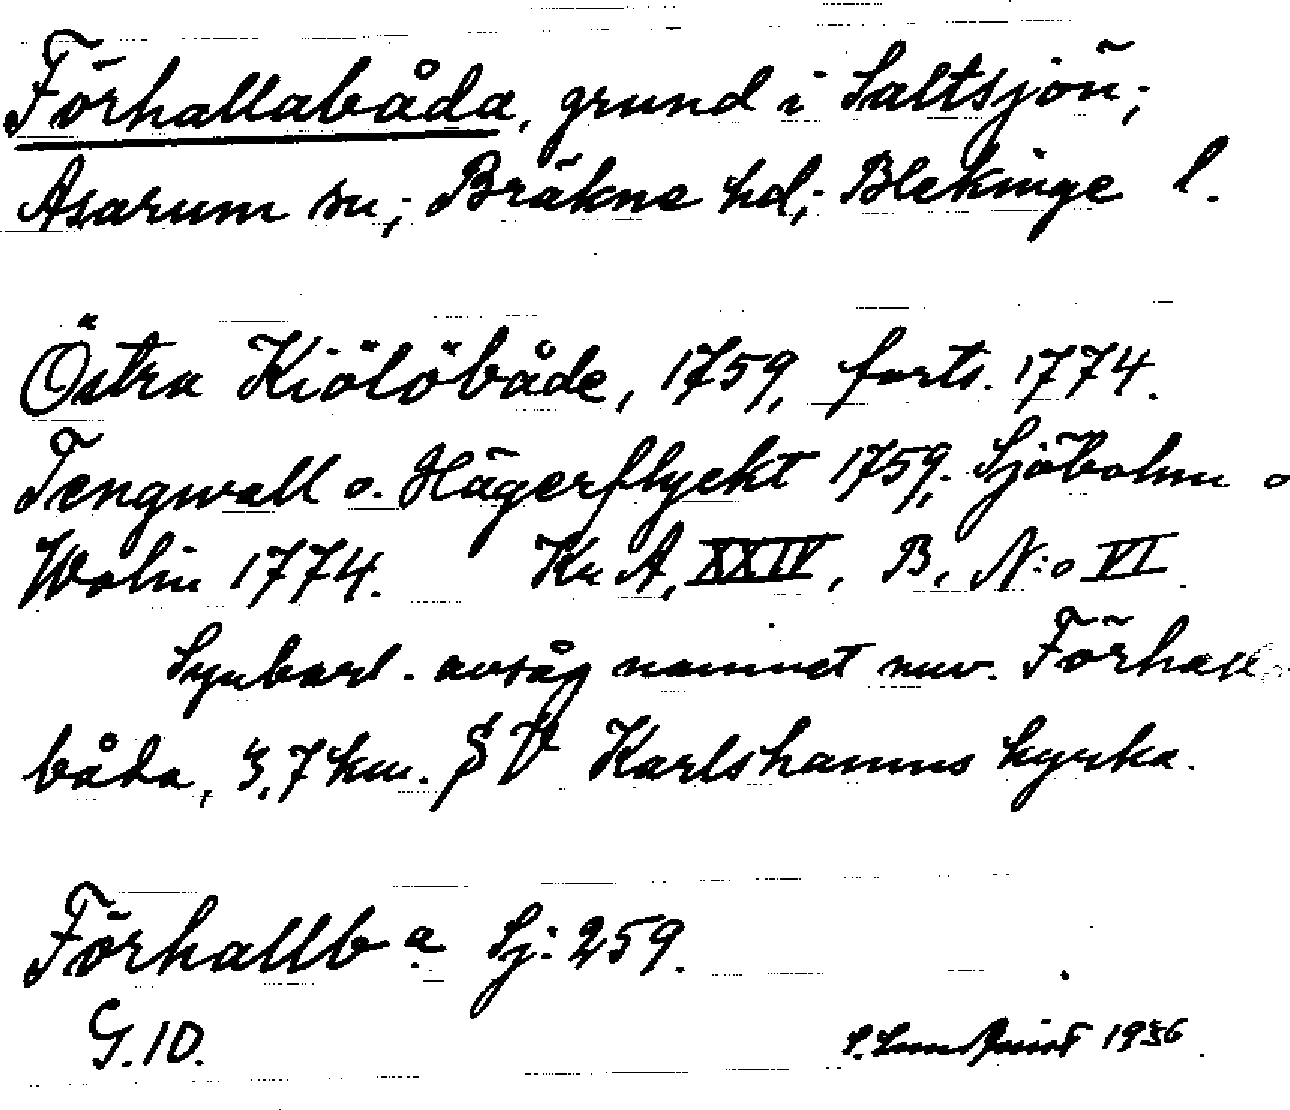 Förhallabåda, grund i Saltsjön;
Asarum sn; Bräkne hd; Blekinge l.
Östra Kiölöbåde, 1759, forts. 1774.
Tengwall o. Hägerflyckt 1759, Sjöbohm o
Wolin 1774. Kr A, XXIV, B, N:o VI
Synbarl. avsåg namnet nuv. Förhall
båda, 3,7 km. S V Karlshamns kyrka.
Förhallb a Sj: 259.
G. 10. 1936